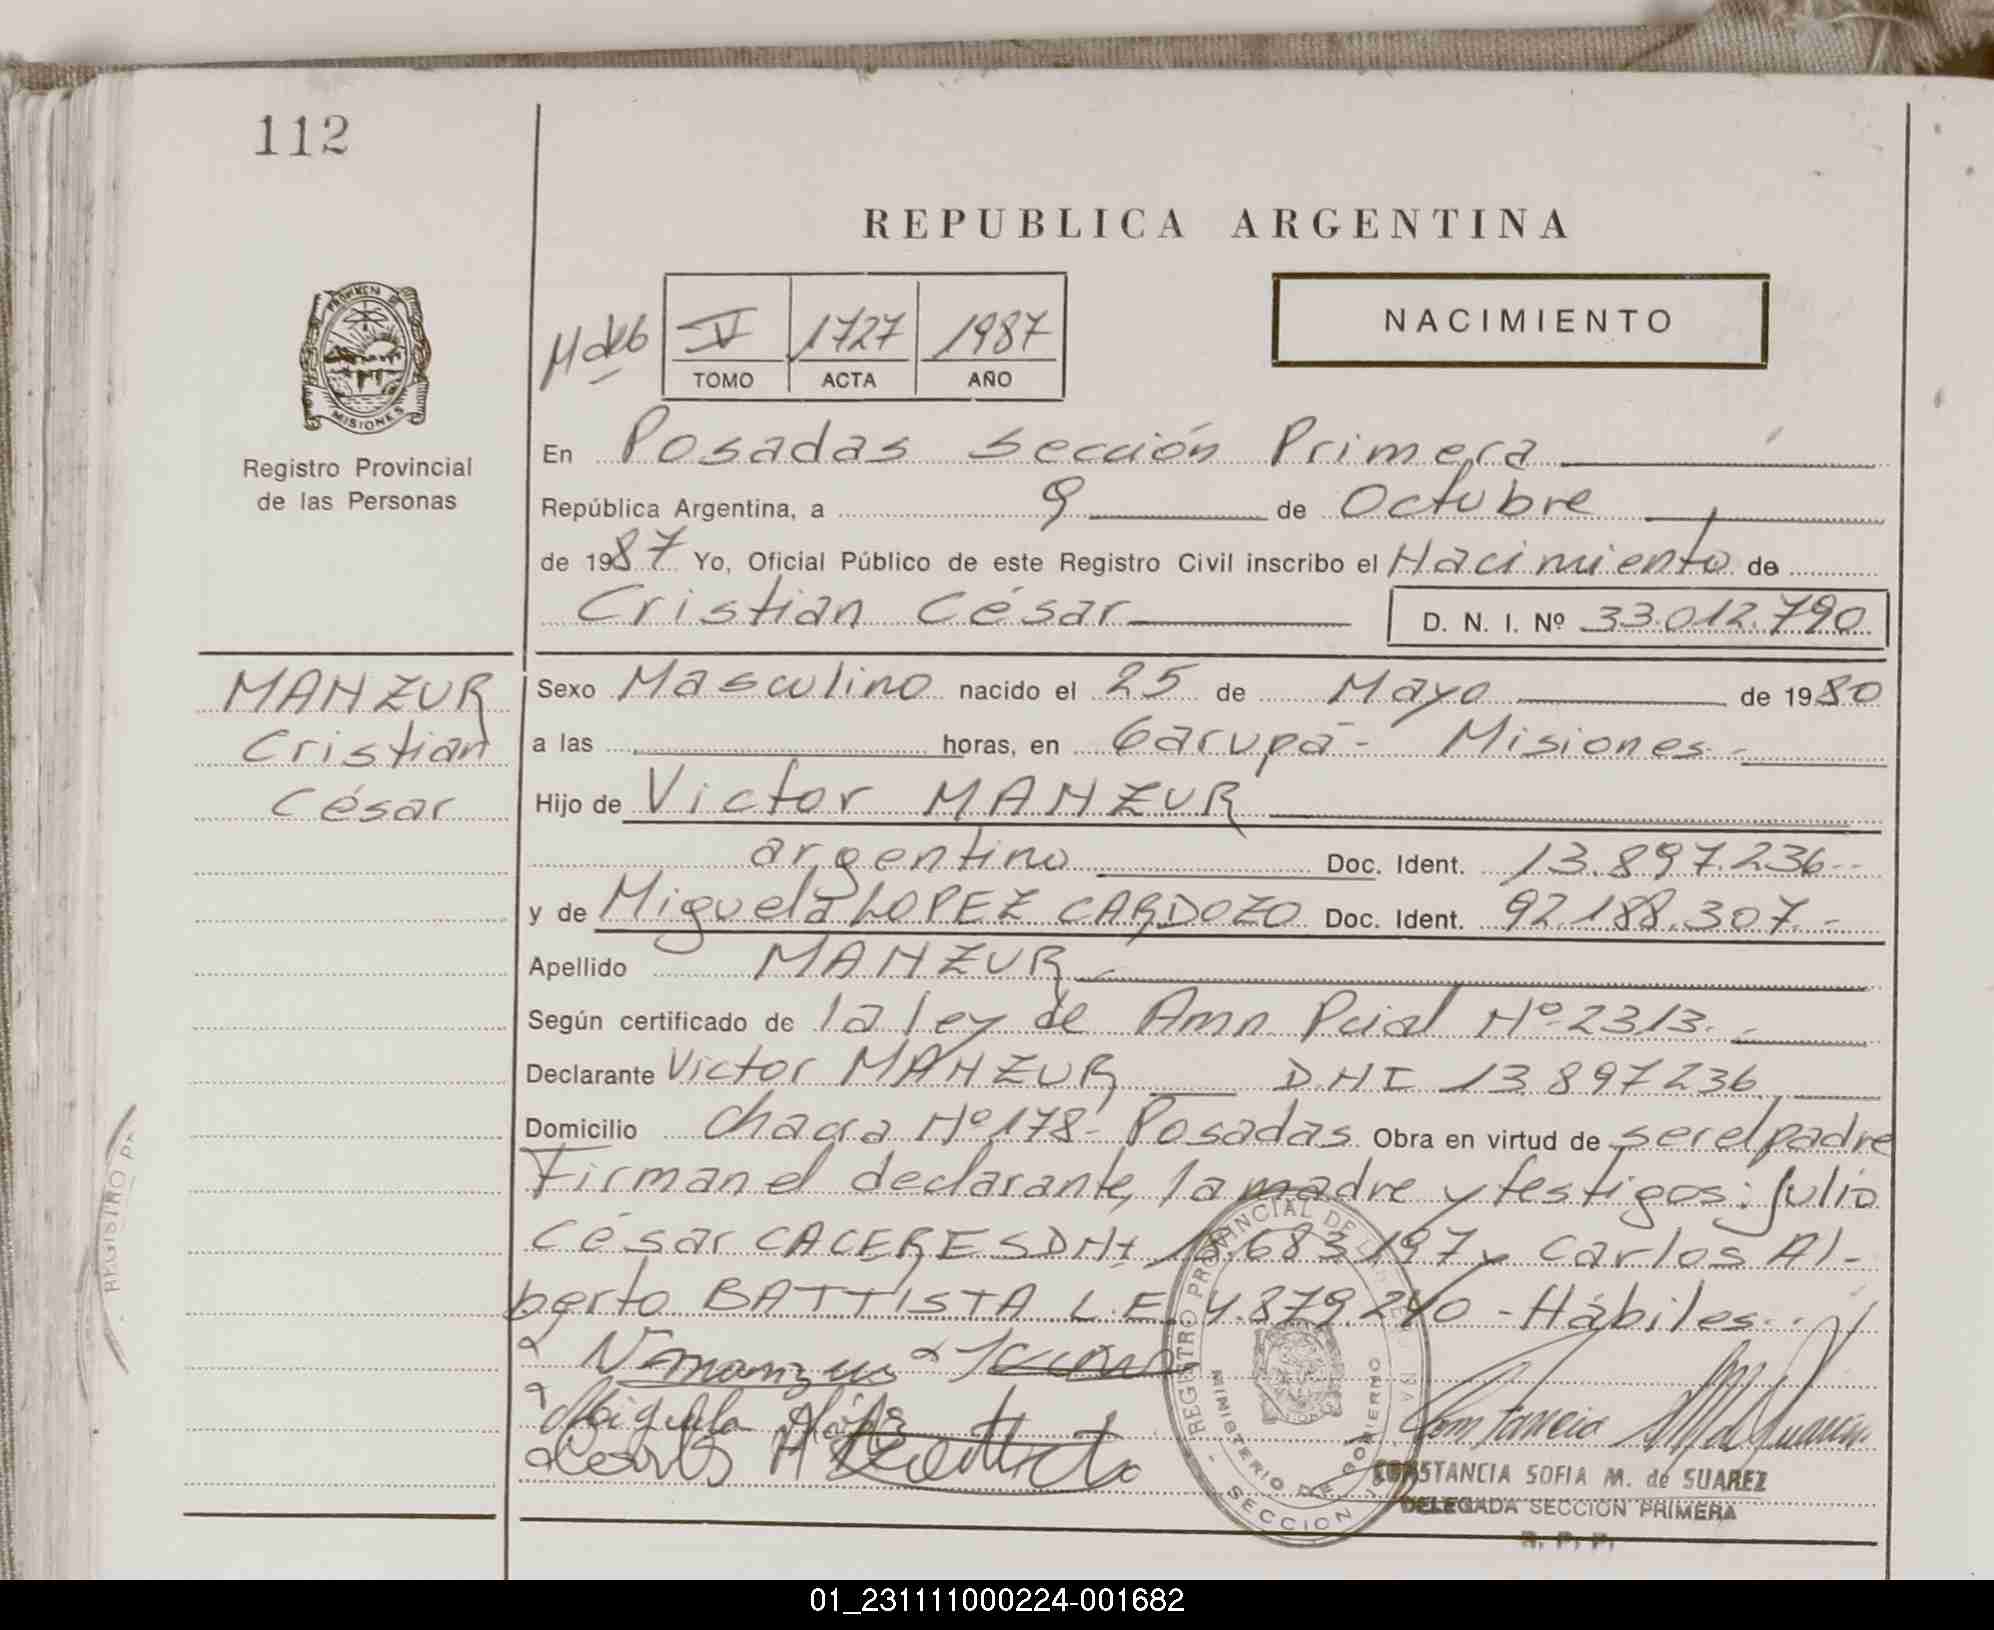 112
REPUBLICA ARGENTINA
V 1727 1987
TOMO ACTA AÑO
NACIMIENTO
PROVINCIA DE
MISIONES
Registro Provincial
de las Personas
En Posadas Sección Primera
República Argentina, a 9 de Octubre
de 1987 Yo, Oficial Público de este Registro Civil inscribo el Nacimiento de
Cristian César D. N. I. Nº 33.012.790
MANZUR
Cristian
César
Sexo Masculino nacido el 25 de Mayo de 1980
a las horas, en Garupá - Misiones
Hijo de Victor MANZUR
argentino Doc. Ident. 13.897.236
y de Miguela LOPEZ CARDOZO Doc. Ident. 92.188.307.-
Apellido MANZUR
Según certificado de la ley de Amn. Pcial Nº 2313.
Declarante Victor MANZUR DNI 13.897.236
Domicilio Chacra Nº 178- Posadas Obra en virtud de ser el padre
Firman el declarante, la madre y testigos: Julio
César CACERES DNI .683.197 y Carlos Al-
berto BATTISTA L.E. 4.879.240 - Hábiles.
REGISTRO PROVINCIAL DE
MINISTERIO DE GOBIERNO
SECCION
CONSTANCIA SOFIA M. de SUAREZ
DELEGADA SECCION PRIMERA
R. P. P.
01_231111000224-001682